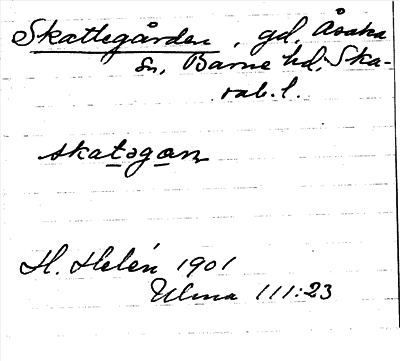 Skattegården, gd, Åsaka
sn, Barne hd, Ska-
rab.l.
skatəgan
H. Helén 1901
Ulma 111:23